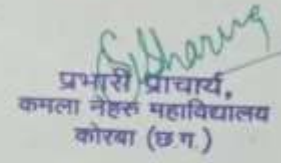 प्रभारी प्राचार्य,
कमला नेहरु महाविद्यालय
कोरबा (छ.ग.)